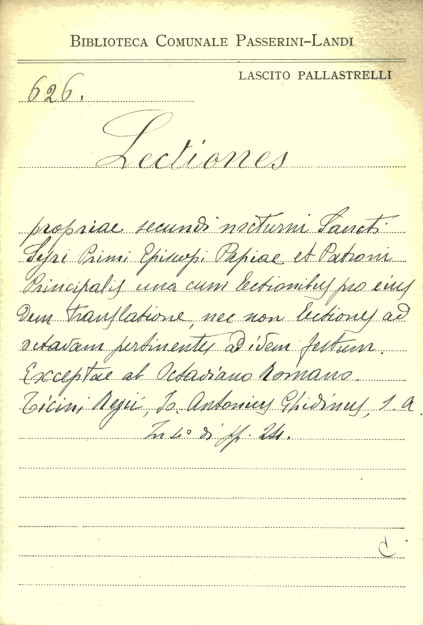 BIBLIOTECA COMUNALE PASSERINI-LANDI
LASCITO PALLASTRELLI
626.
Lectiones
propriae secundi nocturni Sancti
Syri Primi Episcopi Papiae et Patroni
Principalis una cum lectionibus pro eius
dem translatione, nec non lectiones ad
octavam pertinentes ad idem festum.
Exceptae ab Octaviano Romano.
Ticini Regii, Io. Antonius Ghidinus, s. a.
In 4° di pp. 24.
C